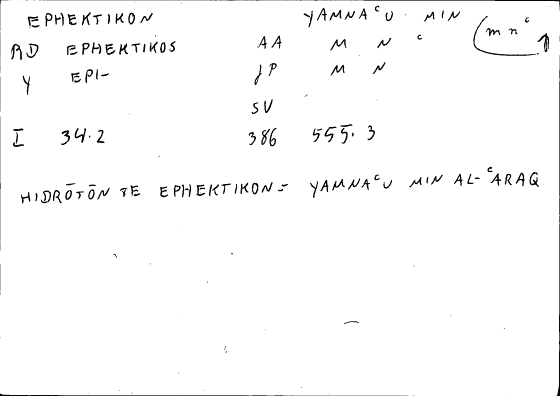 EPHEKTIKON YAMNAᶜU MIN
AD EPHEKTIKOS AA M N ᶜ (m n ᶜ
Y EPI- JP M N
SV
I 34.2 386 555.3
HIDRŌTŌN TE EPHEKTIKON = YAMNAᶜU MIN AL-ᶜARAQ